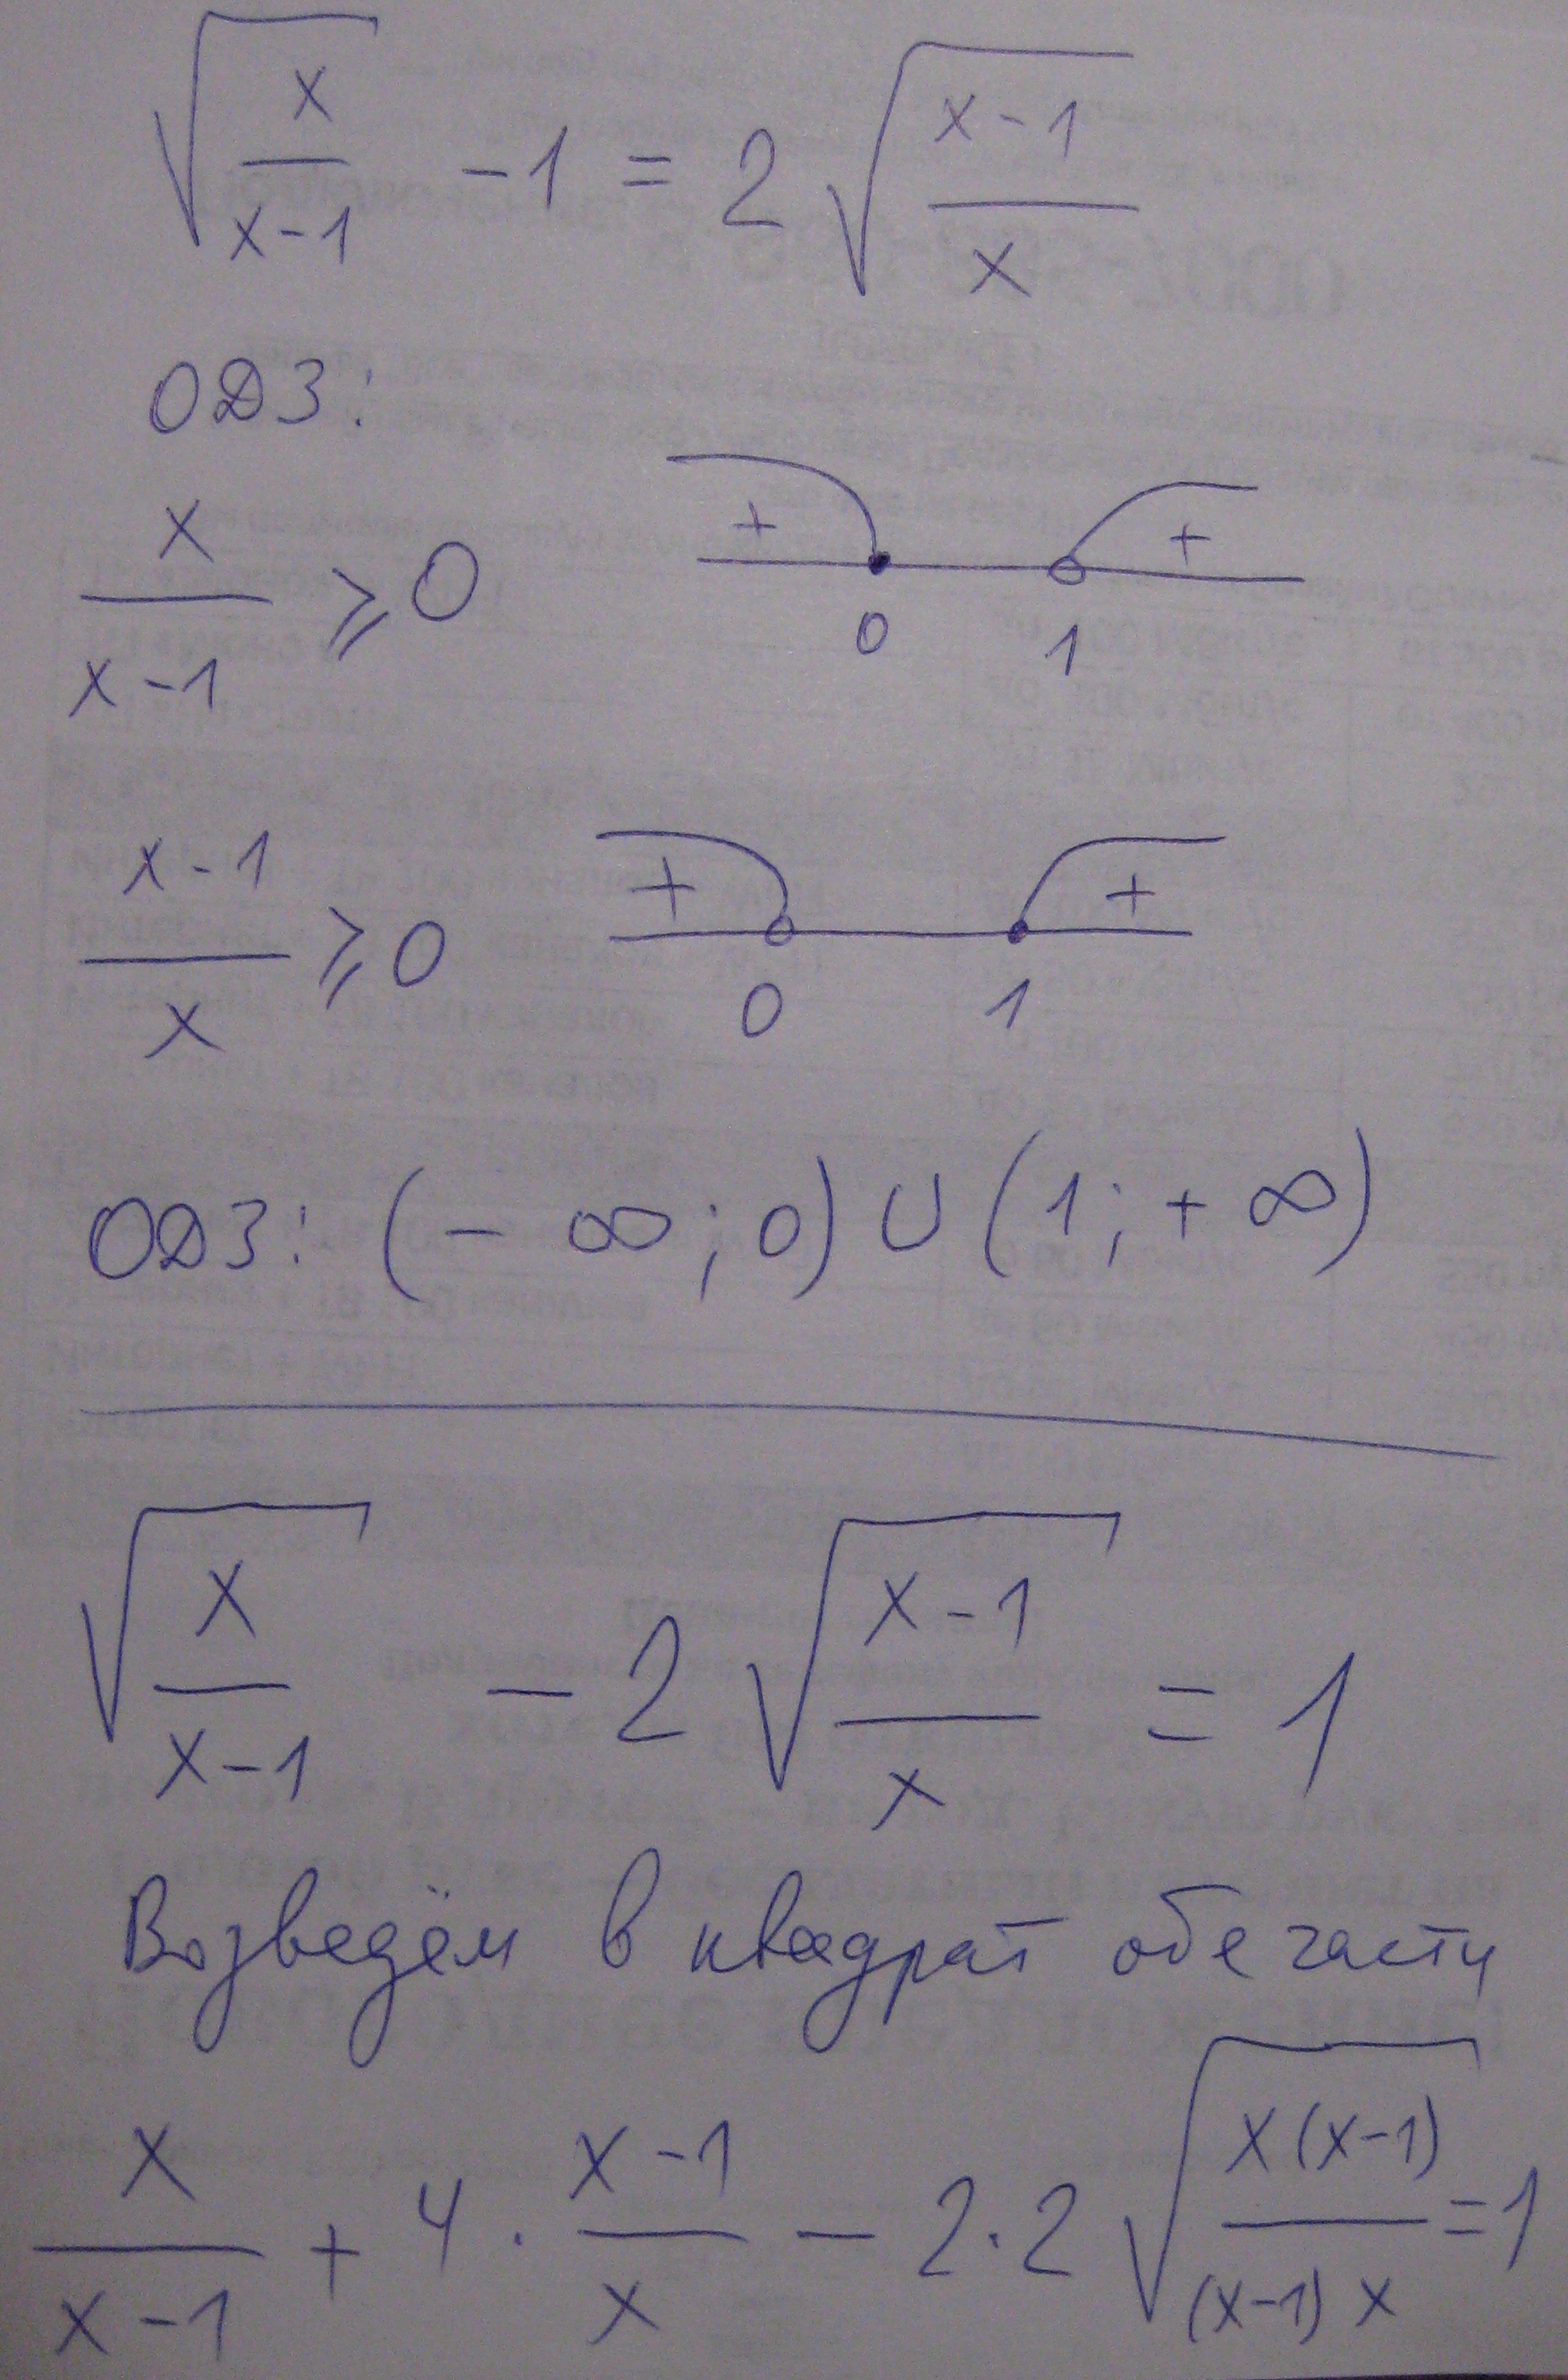 √(x/(x-1)) - 1 = 2 √((x-1)/x)
ОДЗ:
x/(x-1) ⩾ 0
+ +
0 1
(x-1)/x ⩾ 0
+ +
0 1
ОДЗ: (- ∞; 0) ∪ (1; + ∞)
√(x/(x-1)) - 2 √((x-1)/x) = 1
Возведём в квадрат обе части
x/(x-1) + 4 · (x-1)/x - 2·2 √(x(x-1)/((x-1)x)) = 1